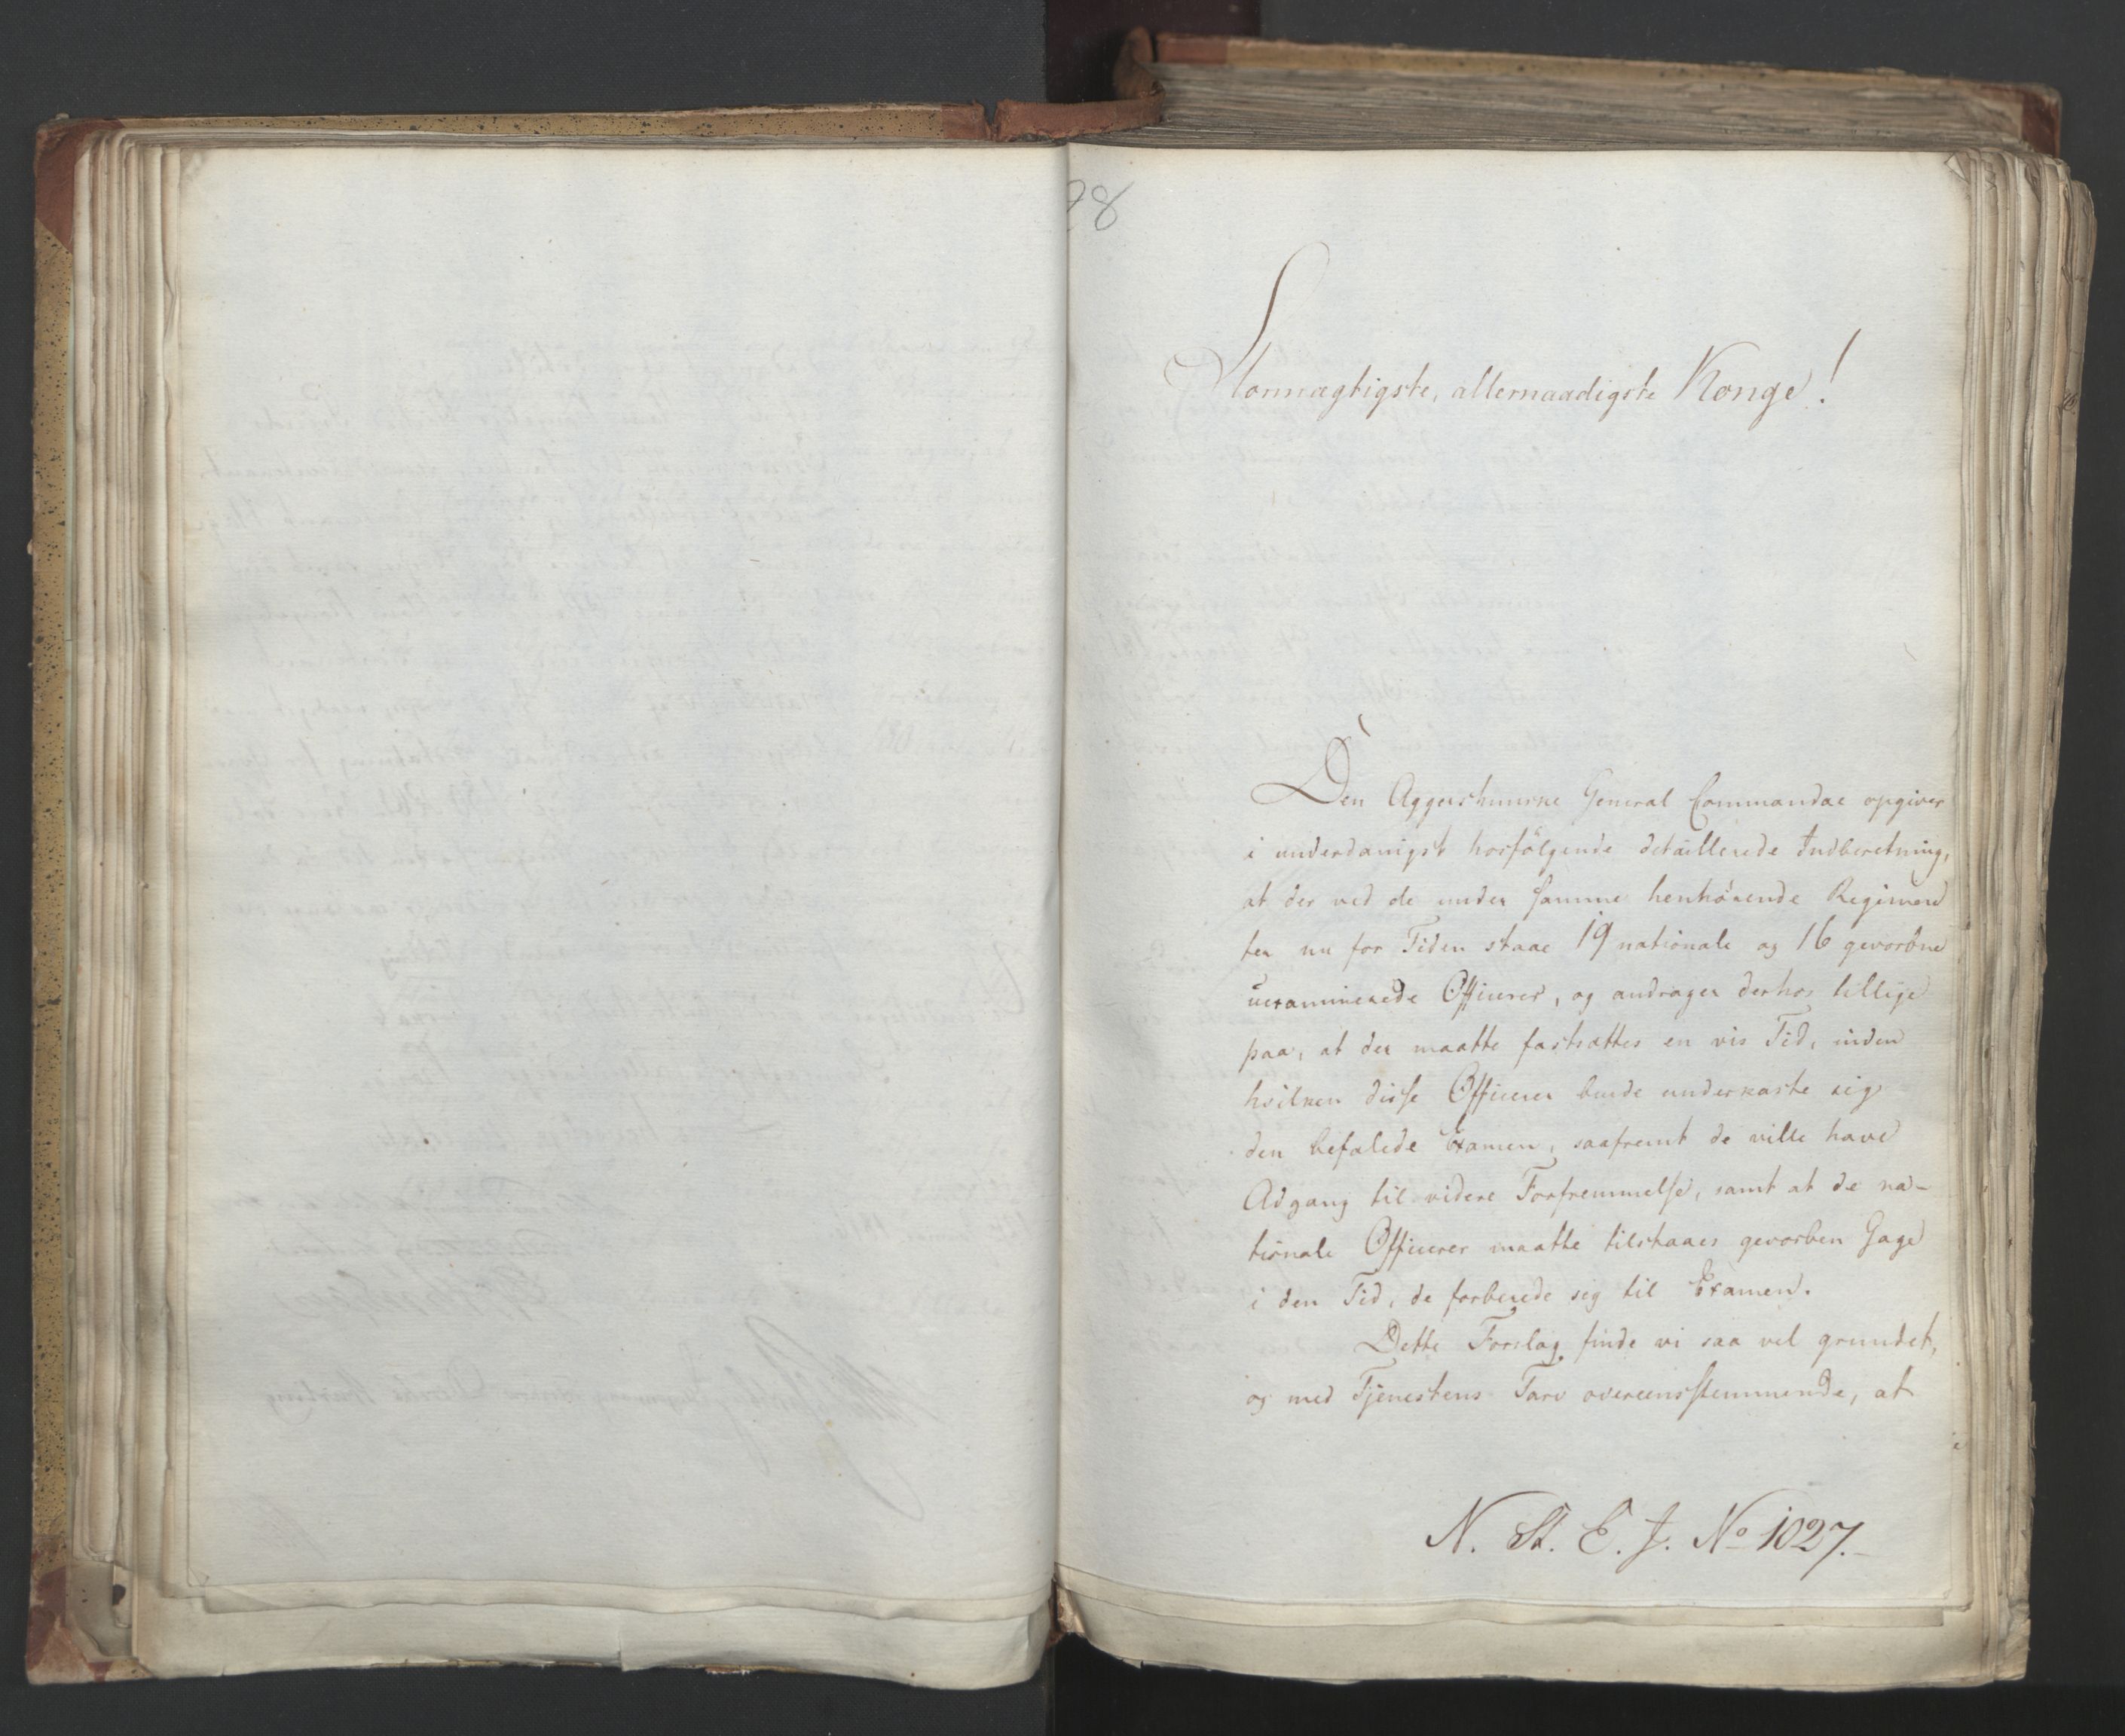 98
Stormægtigste, allernaadigste Konge!
Den Aggershuuske General Commandae opgiver
i underdanigst hosfölgende detaillerede Indberetning,
at der ved de under samme henhörende Regimen
ter nu for Tiden staae 19 nationale og 16 gevorbne
uexaminerede Officerer, og andrager derhos tillige
paa, at der maatte fastsættes en vis Tid, inden
hvilken disse Officerer burde underkaste sig
den befalede Examen, saafremt de ville have
Adgang til videre Forfremmelse, samt at de na-
tionale Officerer maatte tilstaaes gevorben Gage
i den Tid, de forberede sig til Examen.
Dette Forslag finde vi saa vel grundet,
og med Tjenestens Tarv overeensstemmende, at
N. St. E. J. No 1027.-